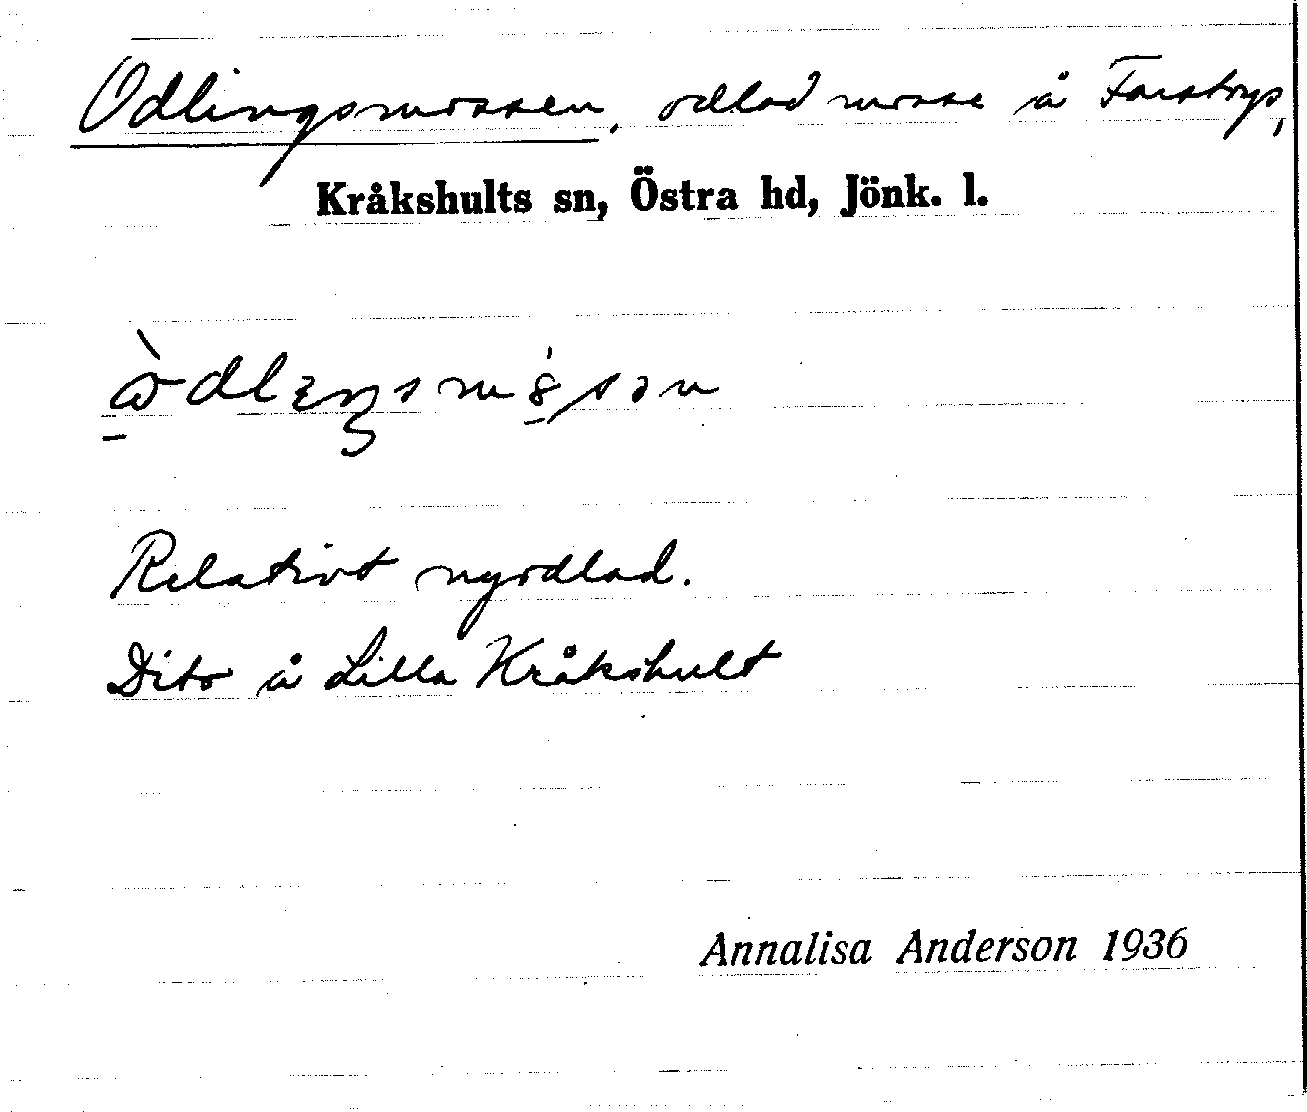 Odlingsmossen, odlad mosse å Farstorp,
Kråkshults sn, Östra hd, Jönk. l.
Relativt nyodlad.
Dito å Lilla Kråkshult
Annalisa Anderson 1936